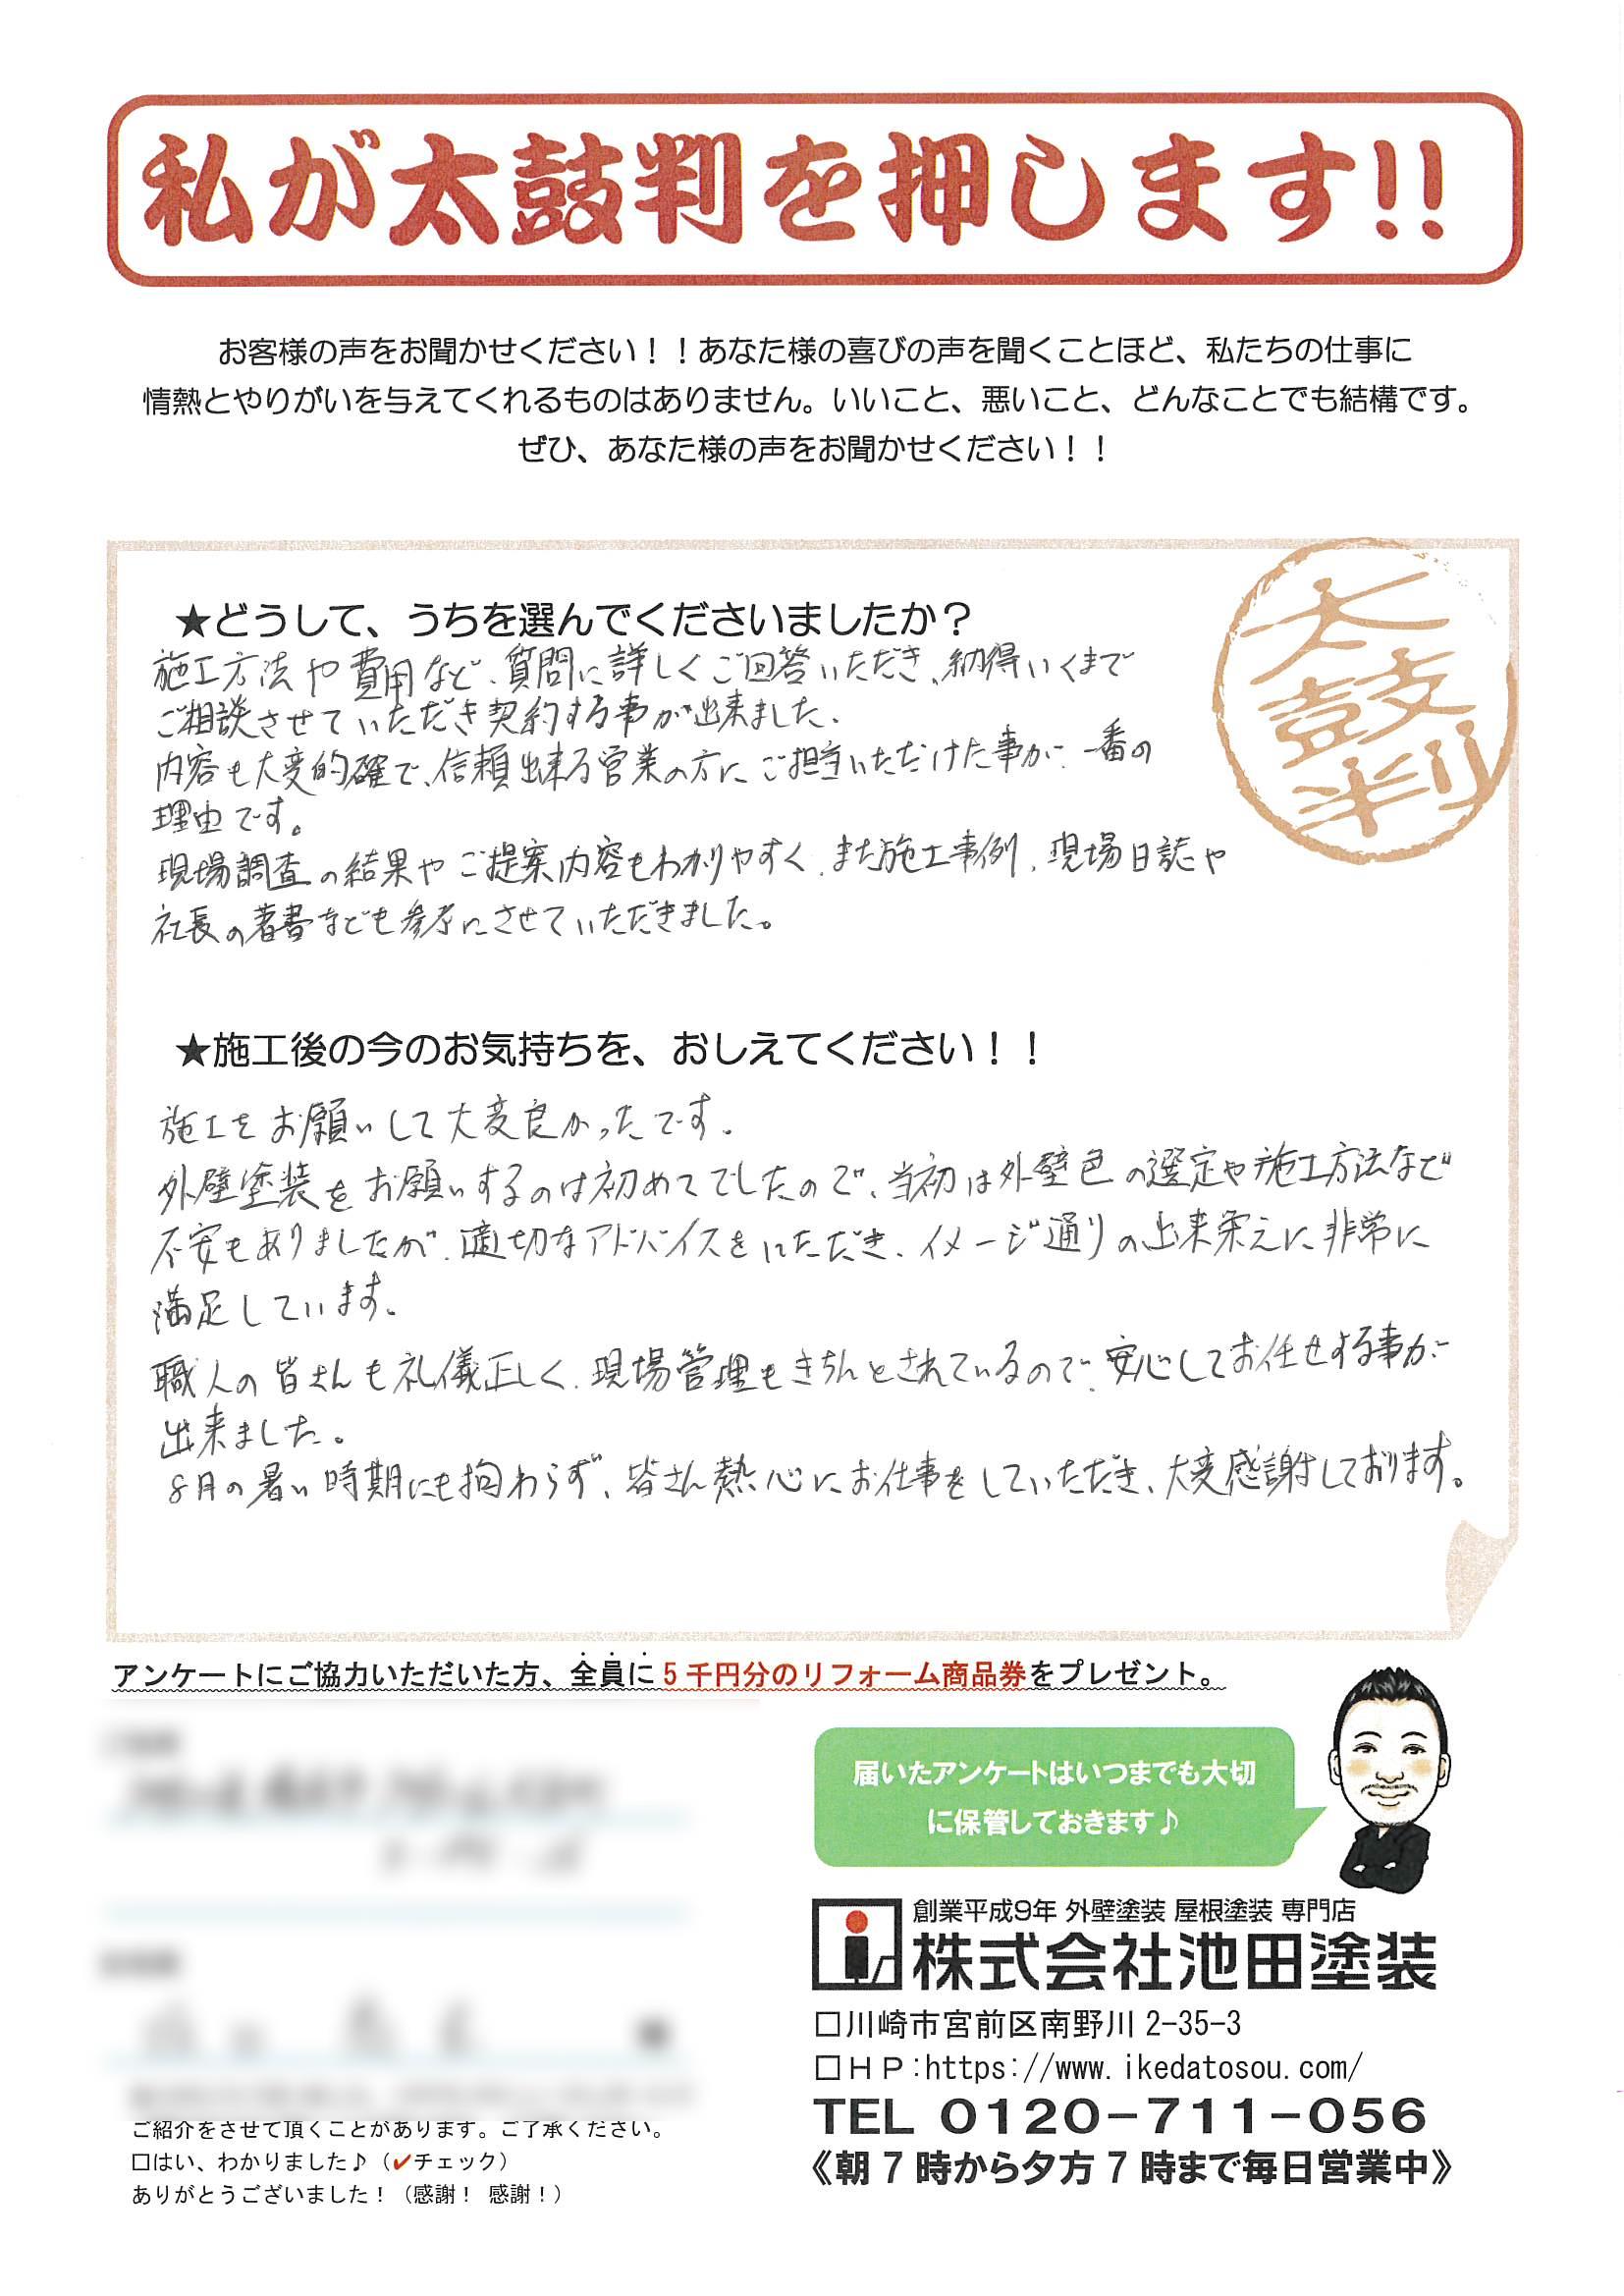 私が太鼓判を押します!!
お客様の声をお聞かせください！！あなた様の喜びの声を聞くことほど、私たちの仕事に
情熱とやりがいを与えてくれるものはありません。いいこと、悪いこと、どんなことでも結構です。
ぜひ、あなた様の声をお聞かせください！！
太鼓判
★どうして、うちを選んでくださいましたか？
施工方法や費用など、質問に詳しくご回答いただき、納得いくまで
ご相談させていただき契約する事が出来ました。
内容も大変的確で、信頼出来る営業の方にご担当いただけた事が、一番の
理由です。
現場調査の結果やご提案内容もわかりやすく、また施工事例、現場日誌や
社長の著書なども参考にさせていただきました。
★施工後の今のお気持ちを、おしえてください！！
施工をお願いして大変良かったです。
外壁塗装をお願いするのは初めてでしたので、当初は外壁色の選定や施工方法など
不安もありましたが、適切なアドバイスをいただき、イメージ通りの出来栄えに非常に
満足しています。
職人の皆さんも礼儀正しく、現場管理もきちんとされているので、安心してお任せする事が
出来ました。
8月の暑い時期にも拘わらず、皆さん熱心にお仕事をしていただき、大変感謝しております。
アンケートにご協力いただいた方、全員に5千円分のリフォーム商品券をプレゼント。
届いたアンケートはいつまでも大切
に保管しておきます♪
創業平成9年 外壁塗装 屋根塗装 専門店
株式会社池田塗装
□川崎市宮前区南野川 2-35-3
□ＨＰ:https://www.ikedatosou.com/
TEL 0120-711-056
《朝7時から夕方7時まで毎日営業中》
ご紹介をさせて頂くことがあります。ご了承ください。
□はい、わかりました♪（✔チェック）
ありがとうございました！（感謝！ 感謝！）